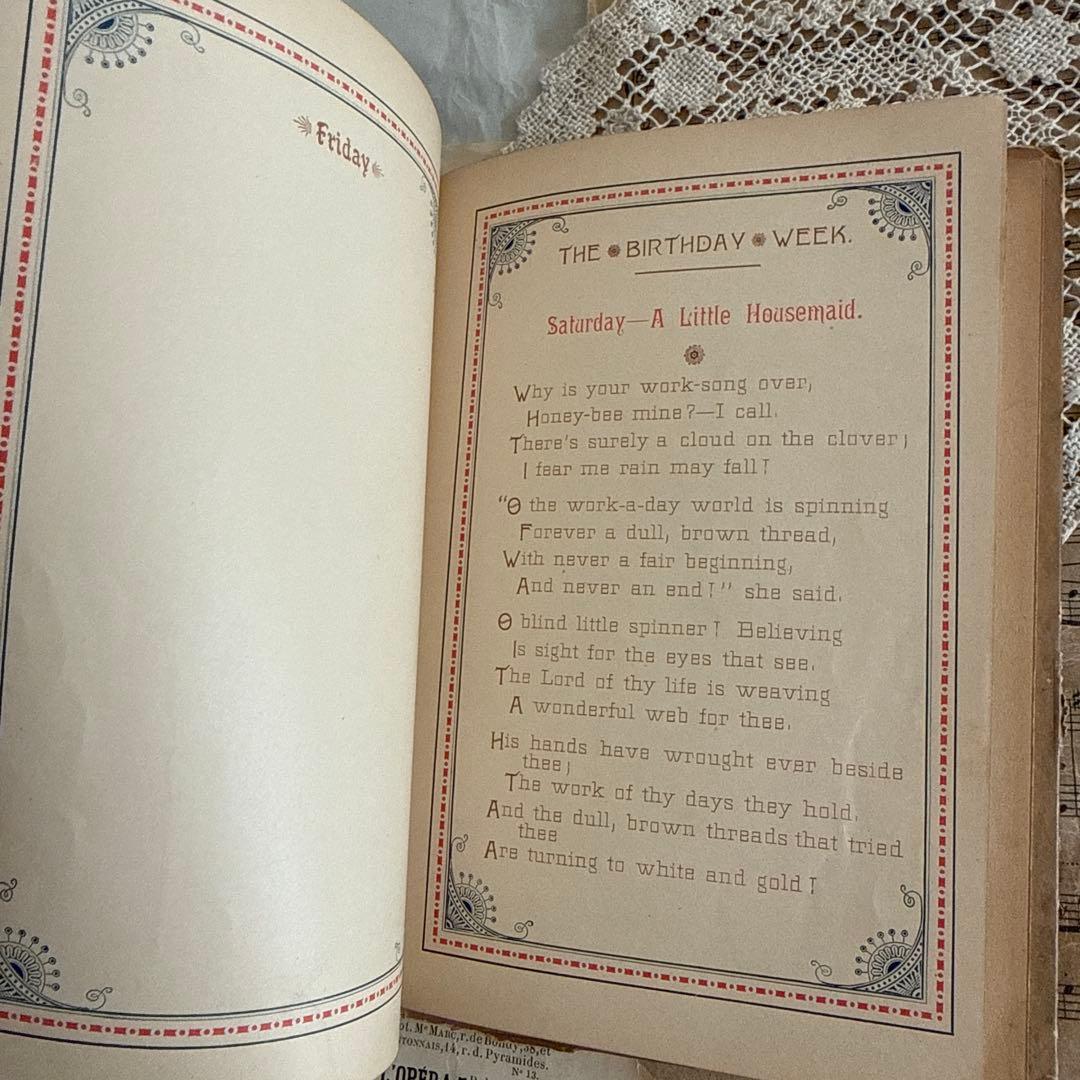 Friday
THE BIRTHDAY WEEK.
Saturday—A Little Housemaid.
Why is your work-song over,
Honey-bee mine?—I call.
There's surely a cloud on the clover;
I fear me rain may fall!
"O the work-a-day world is spinning
Forever a dull, brown thread,
With never a fair beginning,
And never an end!" she said.
O blind little spinner! Believing
Is sight for the eyes that see.
The Lord of thy life is weaving
A wonderful web for thee.
His hands have wrought ever beside
thee;
The work of thy days they hold,
And the dull, brown threads that tried
thee
Are turning to white and gold!
ot. Me MARC, r. de Bondy, 38, et
TONNAIS, 14, r. d. Pyramides.
No 13.
L'OPÉRA